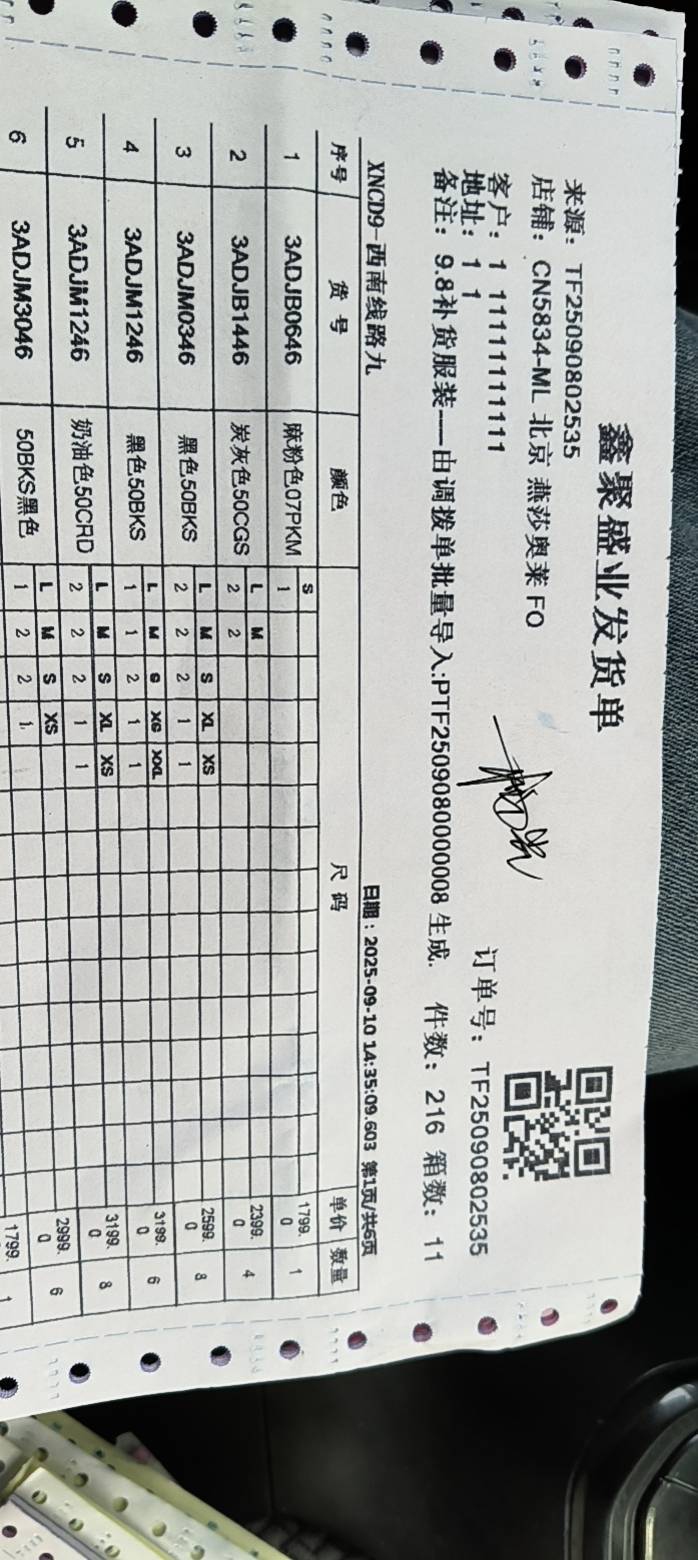 鑫聚盛业发货单
来源: TF25090802535
店铺: CN5834-ML 北京 燕莎奥莱 FO
客户: 1 11111111111
订单号: TF25090802535
地址: 1 1
备注: 9.8补货服装——由调拨单批量导入:PTF2509080000008 生成. 件数: 216 箱数: 11
XNCD9-西南线路九 日期:2025-09-10 14:35:09.603 第1页/共6页
序号 货 号 颜色 尺 码 单价 数量
1 3ADJB0646 麻粉色07PKM S 1799.0 1
1
2 3ADJB1446 炭灰色50CGS L M 2399.0 4
2 2
3 3ADJM0346 黑色50BKS L M S XL XS 2599.0 8
2 2 2 1 1
4 3ADJM1246 黑色50BKS L M S XS XXL 3199.0 6
1 1 2 1 1
5 3ADJM1246 奶油色50CRD L M S XL XS 3199.0 8
2 2 2 1 1
6 3ADJM3046 50BKS黑色 L M S XS 2999.0 6
1 2 2 1
1799. 1